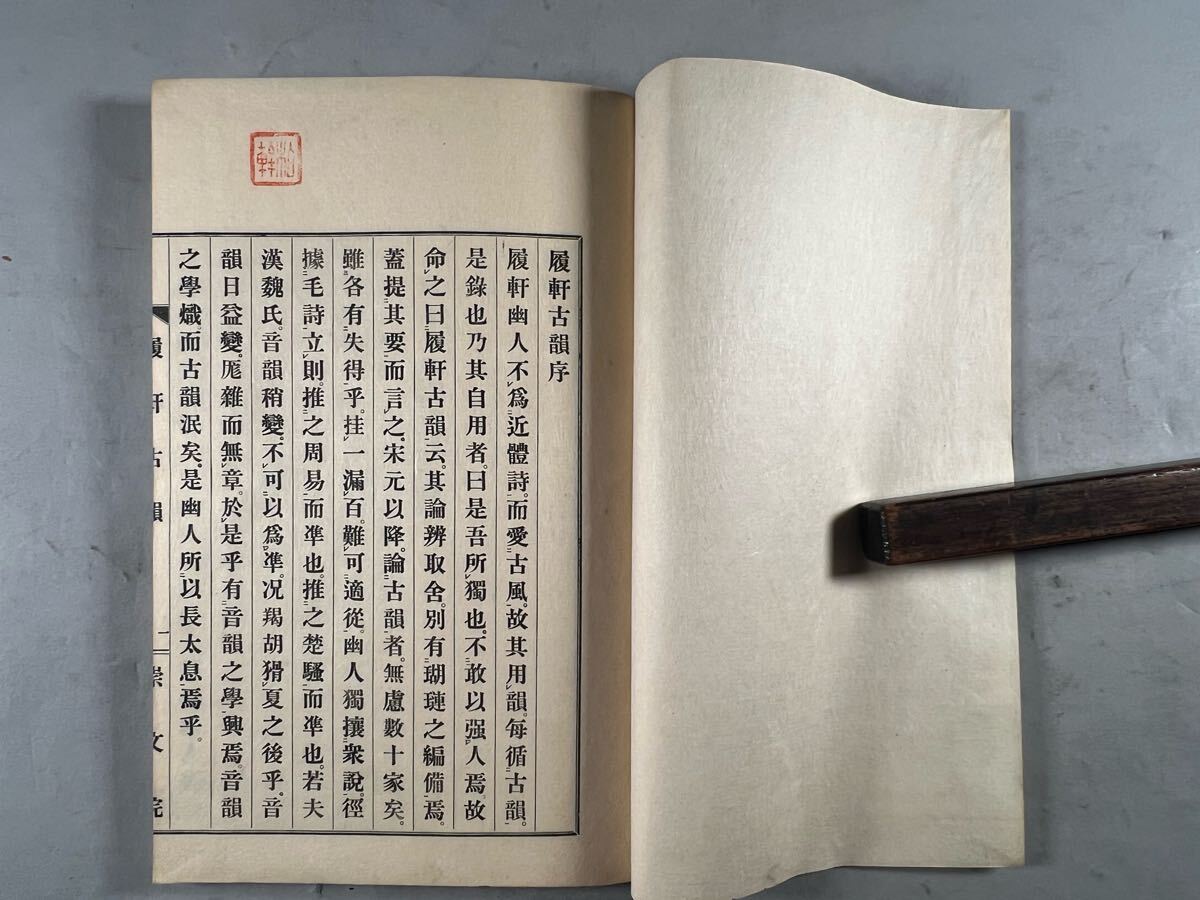 履軒古韻序
履軒幽人不爲近體詩。而愛古風。故其用韻。每循古韻。
是錄也乃其自用者。曰是吾所獨也。不敢以强人焉故
命之曰履軒古韻云。其論辨取舍。別有瑚璉之編備焉。
蓋提其要而言之。宋元以降。論古韻者。無慮數十家矣。
雖各有失得乎。挂一漏百。難可適從。幽人獨攘衆說。徑
據毛詩立則。推之周易而準也。推之楚騷而準也。若夫
漢魏氏。音韻稍變。不可以爲準。况羯胡猾夏之後乎。音
韻日益變。厖雜而無章。於是乎有音韻之學興焉。音韻
之學熾。而古韻泯矣。是幽人所以長太息焉乎。
履軒古韻
一
崇文院